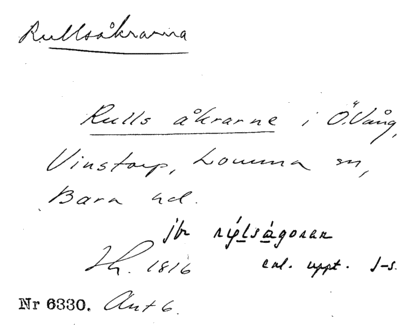 Rullsåkrarna
Rulls åkrarne i Ö. Vång,
Vinstorp, Lomma sn,
Bara hd.
jbr
1816 enl. uppt. J-s.
Nr 6330. Ant 6.